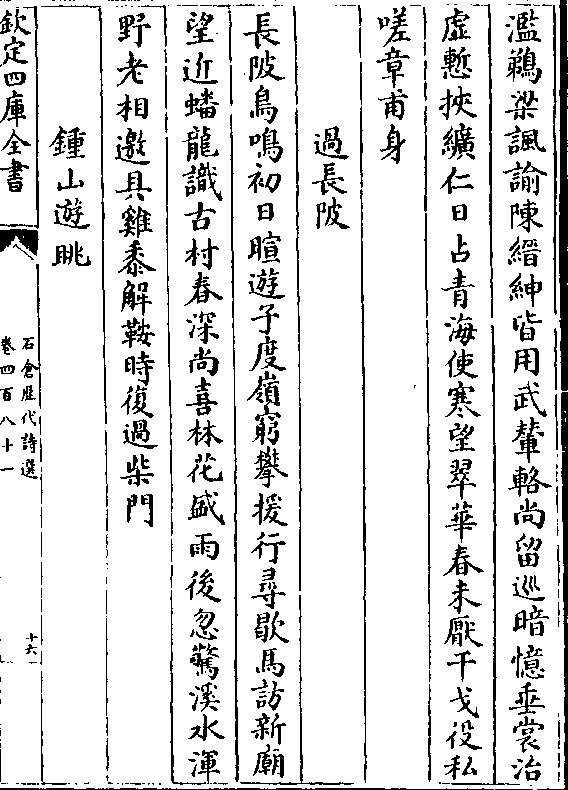 濫鵜梁諷諭陳縉紳皆用武輦輅尚留巡暗憶垂裳治
虚慙挾纊仁日占青海使寒望翠華春未厭干戈役私
嗟章甫身
過長陂
長陂鳥鳴初日暄遊子度嶺窮攀援行尋歇馬訪新廟
望近蟠龍識古村春深尚喜林花盛雨後忽驚溪水渾
野老相邀具雞黍解鞍時復過柴門
鍾山遊眺
欽定四庫全書
石倉歷代詩選
卷四百八十一
十六